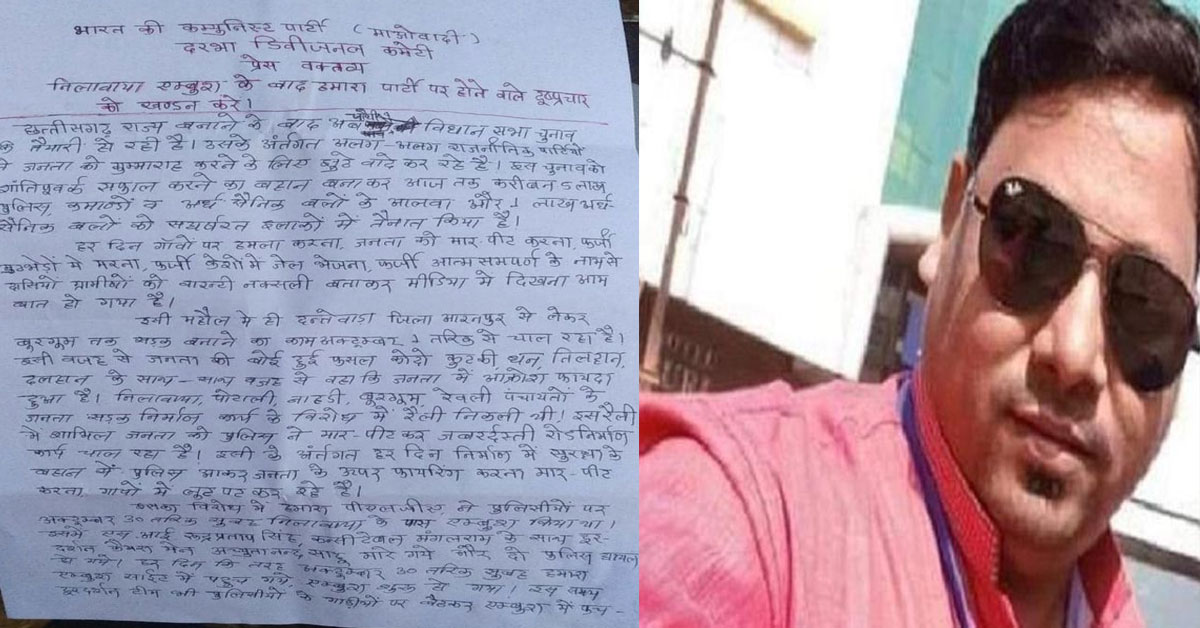 भारत की कम्युनिस्ट पार्टी (माओवादी)
दरभा डिवीजनल कमेटी
प्रेस वक्तव्य
निलावाया एम्बुश के बाद हमारा पार्टी पर होने वाले दुष्प्रचार
को खण्डन करे।
छत्तीसगढ़ राज्य बनाने के बाद अब विधान सभा चुनाव
के तैयारी हो रही है। उसके अंतर्गत अलग-अलग राजनीतिक पार्टियों
ने जनता को गुमाराह करने के लिए झुटे वादे कर रहे है। इस चुनाव को
शांतिपूर्वक सफाल करने का बहान बनाकर आज तक करीबन 5 लाख
पुलिस, कमाण्डो व अर्ध सैनिक बलों के आलवा और 1 लाख अर्ध-
सैनिक बलों को संघर्षरत इलाकों में तैनात किया है।
हर दिन गाँवों पर हमला करना, जनता को मार-पीट करना, फर्जी
मुटभेड़ों में मरना, फर्जी केशों मे जेल भेजना, फर्जी आत्म समपर्ण के नाम से
ग्रामीणों को वारन्टी नक्सली बताकर मीडिया मे दिखना आम
बात हो गया है।
इसी महौल मे ही दन्तेवाड़ा जिला मारनपुर से लेकर
बुरगुम तक सड़क बनाने का काम अक्टुम्बर 1 तरिक से चाल रहा है।
इसी वजह से जनता की बोई हुई फसल कोदो कुटकी, धन, तिलहन,
दलहान के साथ-साथ वजह से वहा कि जनता में आक्रोश फायदा
हुआ है। निलावाया, पोटाली, बाहडी, बुरगुम, रेवली पंचायतो के
जनता सड़क निर्माण कार्य के विरोध में रैली निकली थी। इस रैली
मे शामिल जनता को पुलिस ने मार-पीट कर जबरर्दस्ती रोड निर्माण
कार्य चाल रहा है। इसी के अंतर्गत हर दिन निर्माण में सुरक्षा के
बहान में पुलिस आकर जनता के ऊपर फायरिंग करना मार-पीट
करना, गावों में लुट पट कर रहे है।
इसका विरोध में हमारा पीएलजीए ने पुलिसीयों पर
अक्टुम्बर 30 तरिक सुबह निलावाया के पास एम्बुश किया था।
इसमे एस.आई रूद्रप्रताप सिंह, कन्सीटेवल मंगलराम के साथ दूर-
दर्शन कैमरा मेन अच्युतानन्द साहू मारे गये और दो पुलिस घायल
हो गये। हर दिन कि तरह अक्टुम्बर 30 तरिक सुबह हमारा
एम्बुश साईट में पहुच गये, एम्बुश शुरू हो गया। इस समय
दूरदर्शन टीम भी पुलिसीयों के गाडीयों पर बैठकर एम्बुश में फंस-